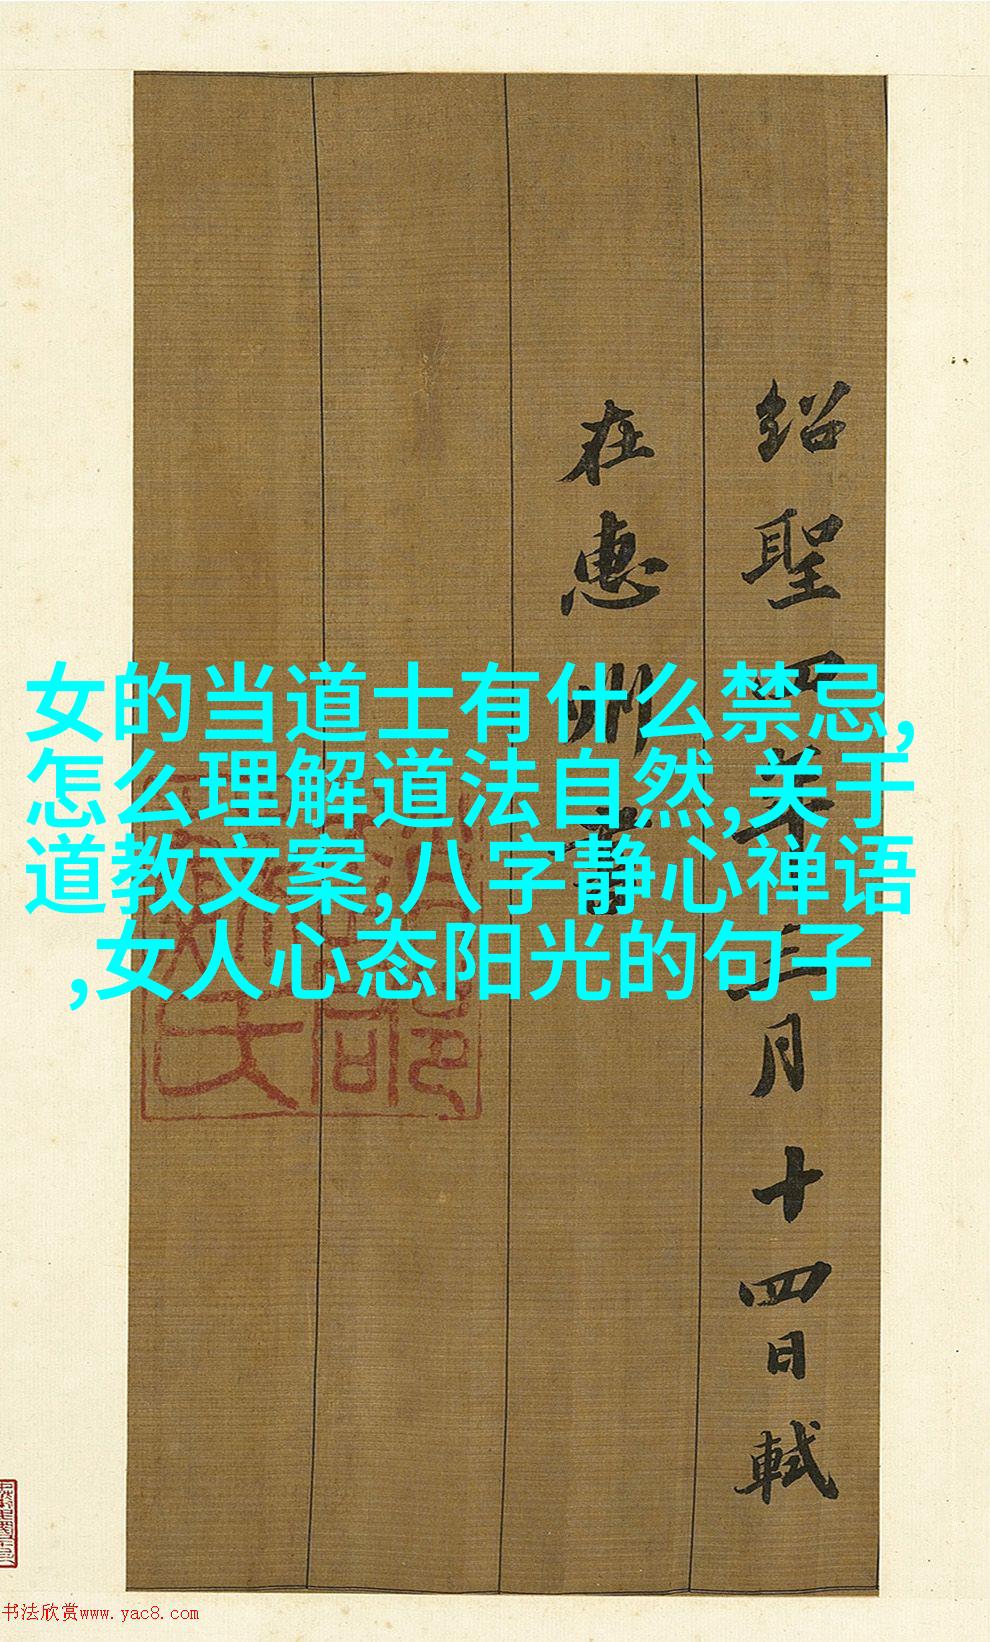 女的当道士有什么禁忌,
怎么理解道法自然,关于
道教文案,八字静心禅语
,女人心态阳光的句子
紹聖四年三月十四日軾
在惠州書
书法欣赏www.yac8.com